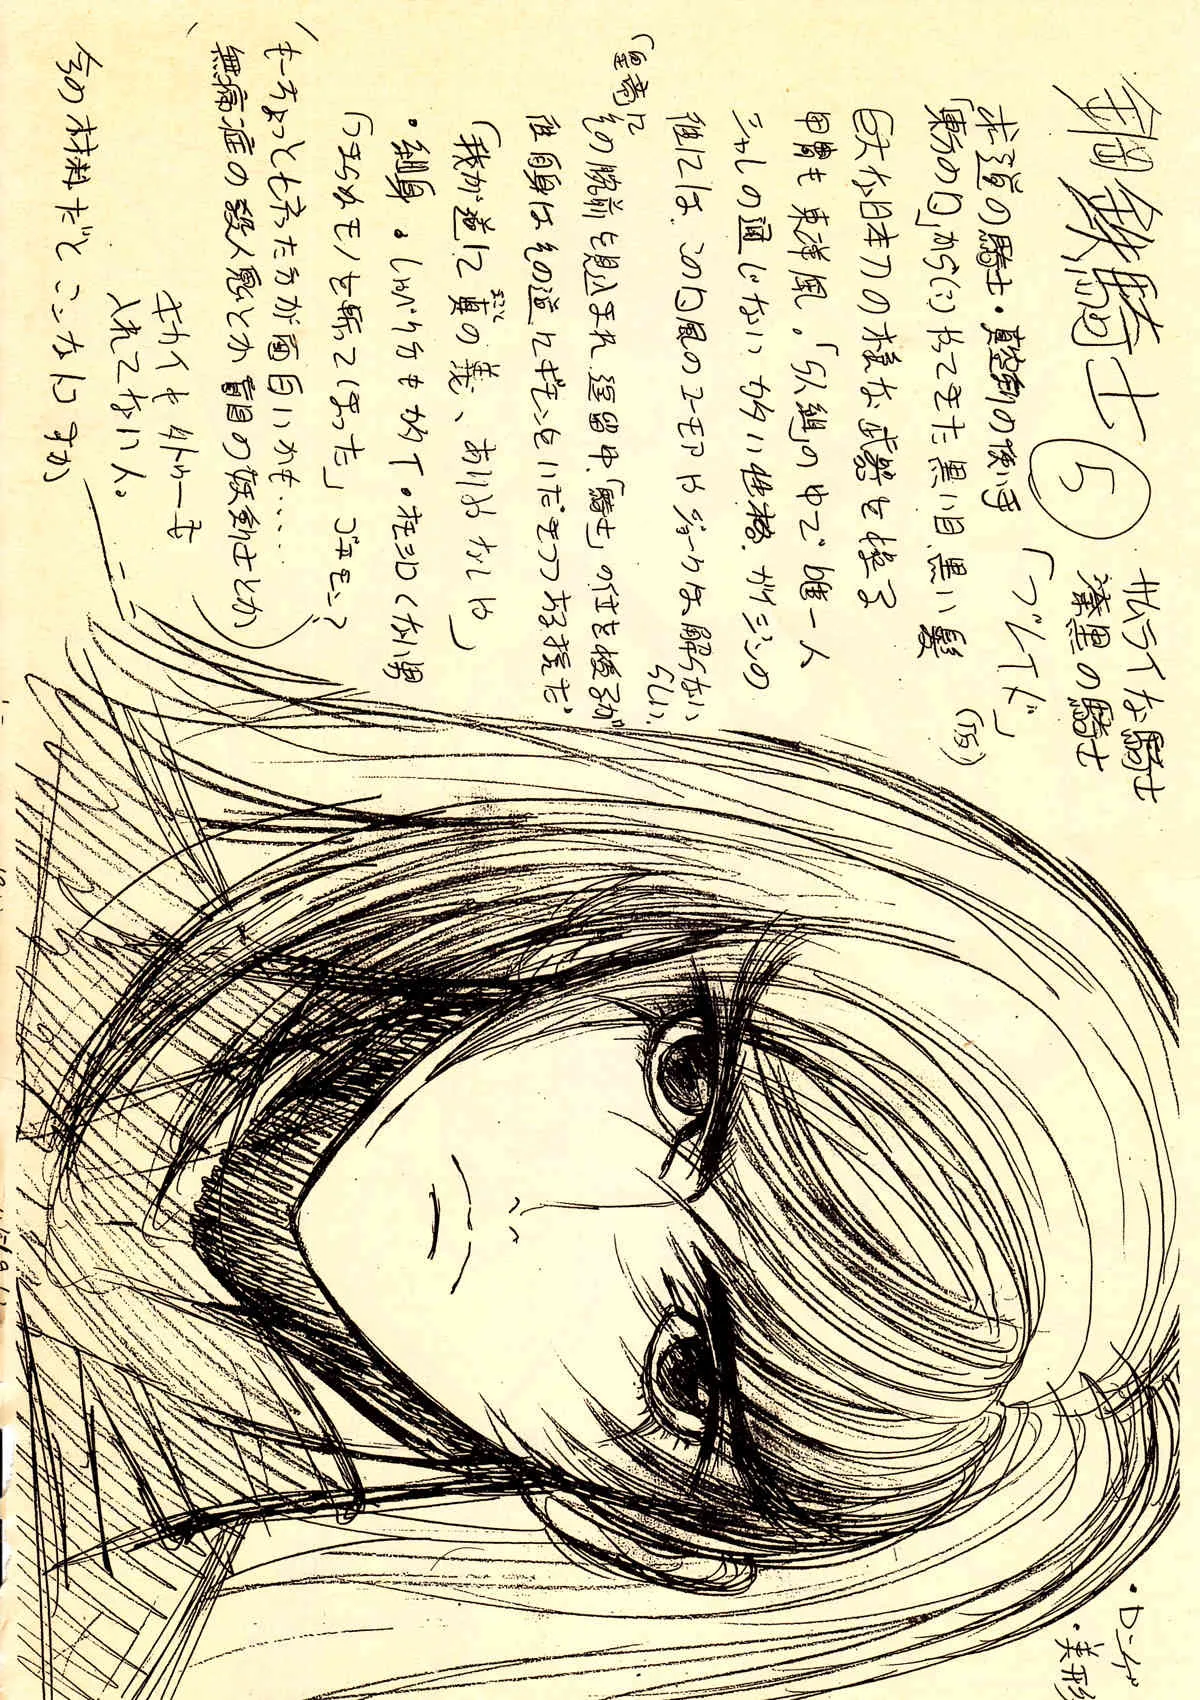 鋼鉄騎士 5
サムライな騎士
漆黒の騎士
「ブレイド」
(仮)
求道の騎士・真空斬の使い手
「東方の国」からやってきた黒い目黒い髪
巨大な日本刀の様な武器を操る
甲冑も東洋風。「引組」の中で唯一人
シャレの通じないカタい性格。ガイジンの
彼には、この国風のユーモアやジョークは解らない
らしい。
(皇帝に
その腕前を見込まれ逗留中、「騎士」の任を授るが
彼自身はその道にギモンをいだきつつある様だ
「我が道に真の義、ありやなしや」
・細身。しゃべり方もカタイ・面白くない男
「つまらぬモノを斬ってしまった」ゴエモン?
(もーちょっと七方の方が面白いかも....
無痛症の殺人鬼とか盲目の妖剣士とか)
キカイも外ウーも
入れてない人。
今の材料だとこんなトコすか
・ロンゲ
・美形